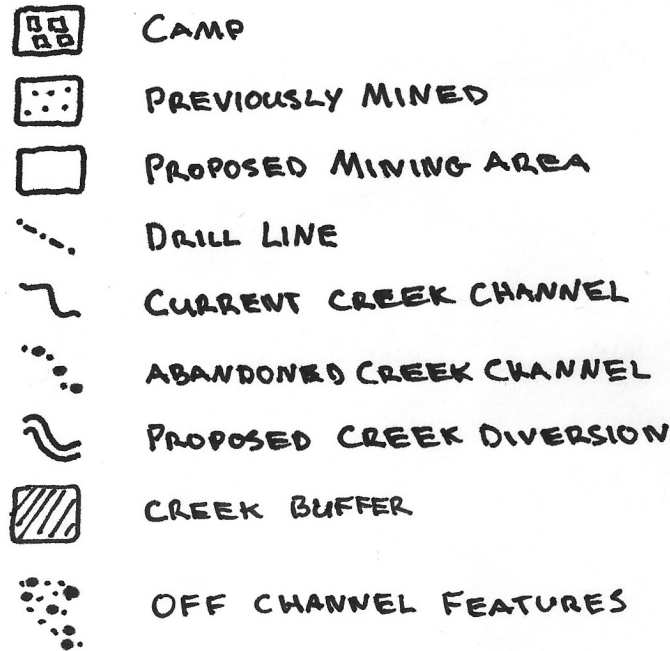 CAMP
PREVIOUSLY MINED
PROPOSED MINING AREA
DRILL LINE
CURRENT CREEK CHANNEL
ABANDONED CREEK CHANNEL
PROPOSED CREEK DIVERSION
CREEK BUFFER
OFF CHANNEL FEATURES